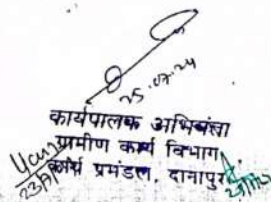 25.07.24
कार्यपालक अभियंता
ग्रामीण कार्य विभाग
कार्य प्रमंडल, दानापुर